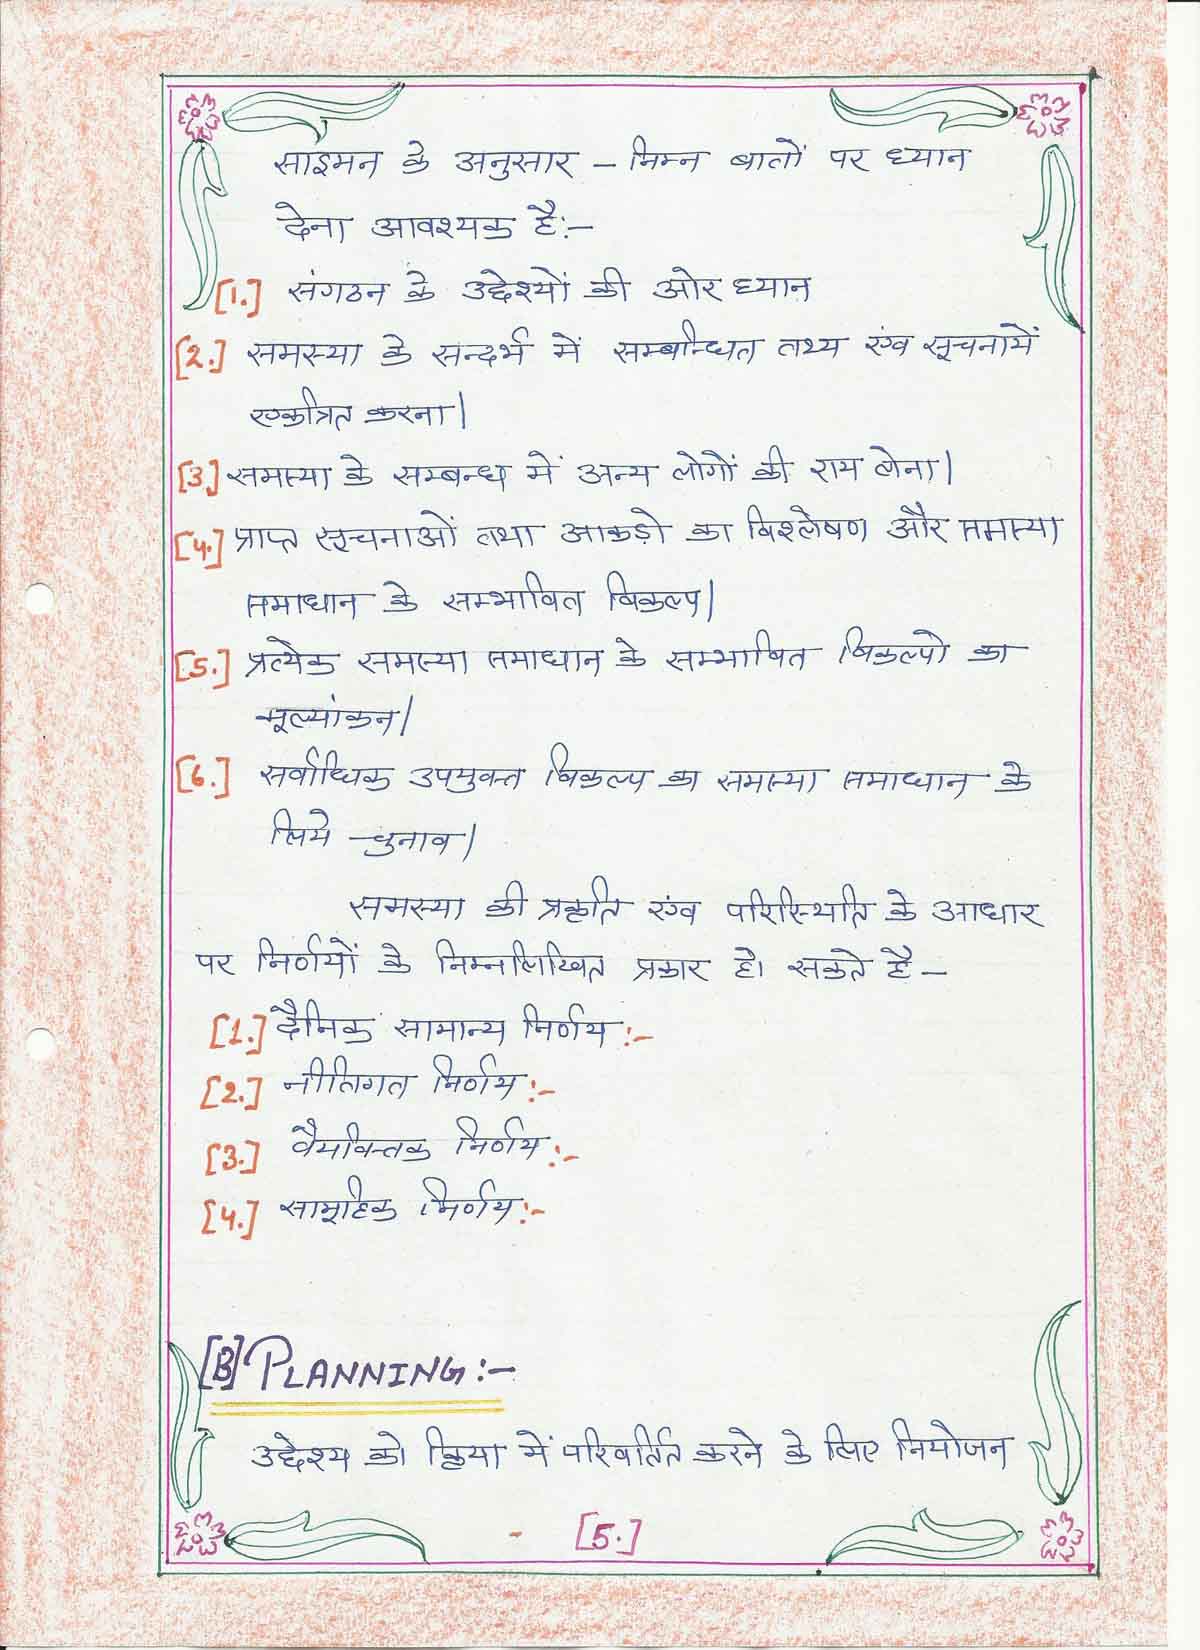 साइमन के अनुसार – निम्न बातों पर ध्यान
देना आवश्यक है:-
[1.] संगठन के उद्देश्यों की ओर ध्यान
[2.] समस्या के सन्दर्भ में सम्बन्धित तथ्य एंव सूचनायें
एकत्रित करना।
[3.] समस्या के सम्बन्ध में अन्य लोगों की राय लेना।
[4.] प्राप्त सूचनाओं तथा आकड़ो का विश्लेषण और समस्या
समाधान के सम्भावित विकल्प।
[5.] प्रत्येक समस्या समाधान के सम्भावित विकल्पो का
मूल्यांकन।
[6.] सर्वाधिक उपयुक्त विकल्प का समस्या समाधान के
लिये चुनाव।
समस्या की प्रकृति एंव परिस्थिति के आधार
पर निर्णयों के निम्नलिखित प्रकार हो सकते है –
[1.] दैनिक सामान्य निर्णय :-
[2.] नीतिगत निर्णय :-
[3.] वैयक्तिक निर्णय :-
[4.] सामूहिक निर्णय :-
[B] PLANNING :-
उद्देश्य को क्रिया में परिवर्तित करने के लिए नियोजन
- [5.]